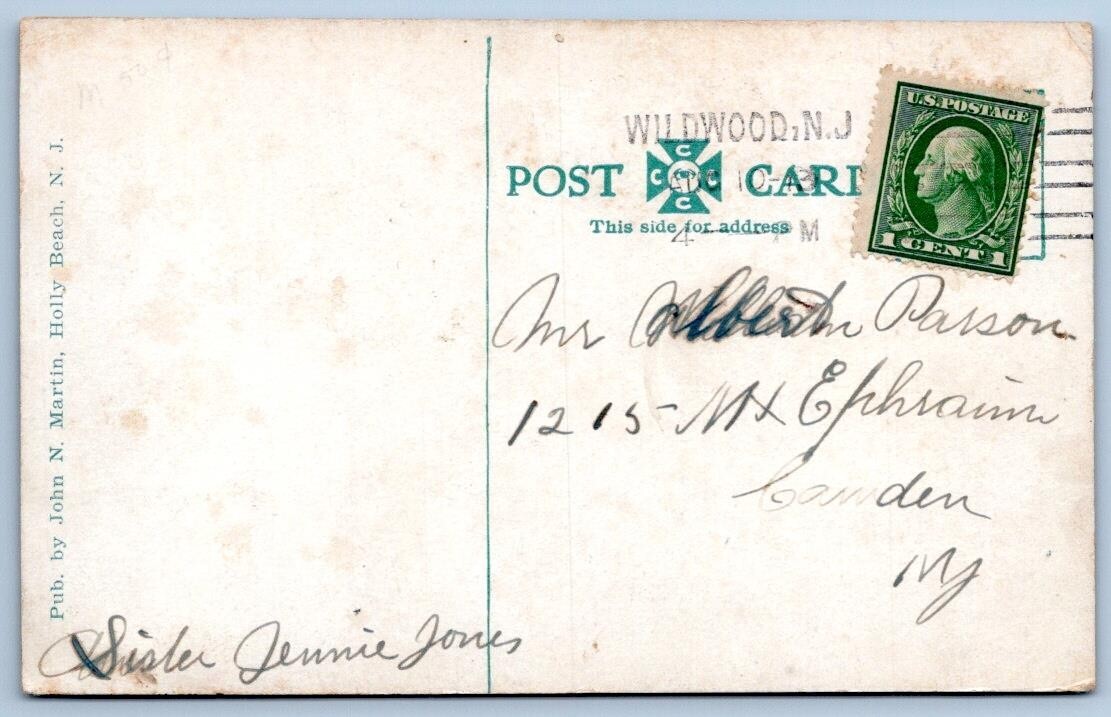 WILDWOOD, N.J
POST CARD
AUG 10-13
This side for address
4 — PM
U.S. POSTAGE
1 CENT 1
Mr Albert Parson
1215 Mt Ephraim
Camden
NJ
Pub. by John N. Martin, Holly Beach, N. J.
Sister Jennie Jones